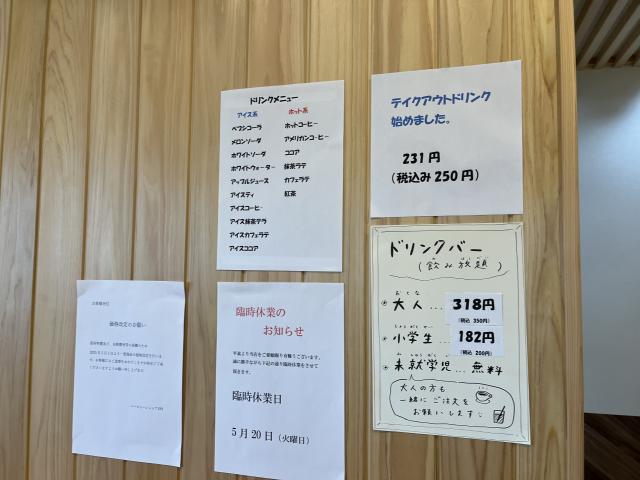 ドリンクメニュー
アイス系 ホット系
ペプシコーラ ホットコーヒー
メロンソーダ アメリカンコーヒー
ホワイトソーダ ココア
ホワイトウォーター 抹茶ラテ
アップルジュース カフェラテ
アイスティ 紅茶
アイスコーヒー
アイス抹茶テラ
アイスカフェラテ
アイスココア
テイクアウトドリンク
始めました。
231円
(税込み250円)
ドリンクバー
(飲み放題)
大人…318円
(税込 350円)
小学生…182円
(税込 200円)
未就学児…無料
大人の方も
一緒にご注文を
お願いします
臨時休業の
お知らせ
臨時休業日
5月20日(火曜日)
価格改定のお願い